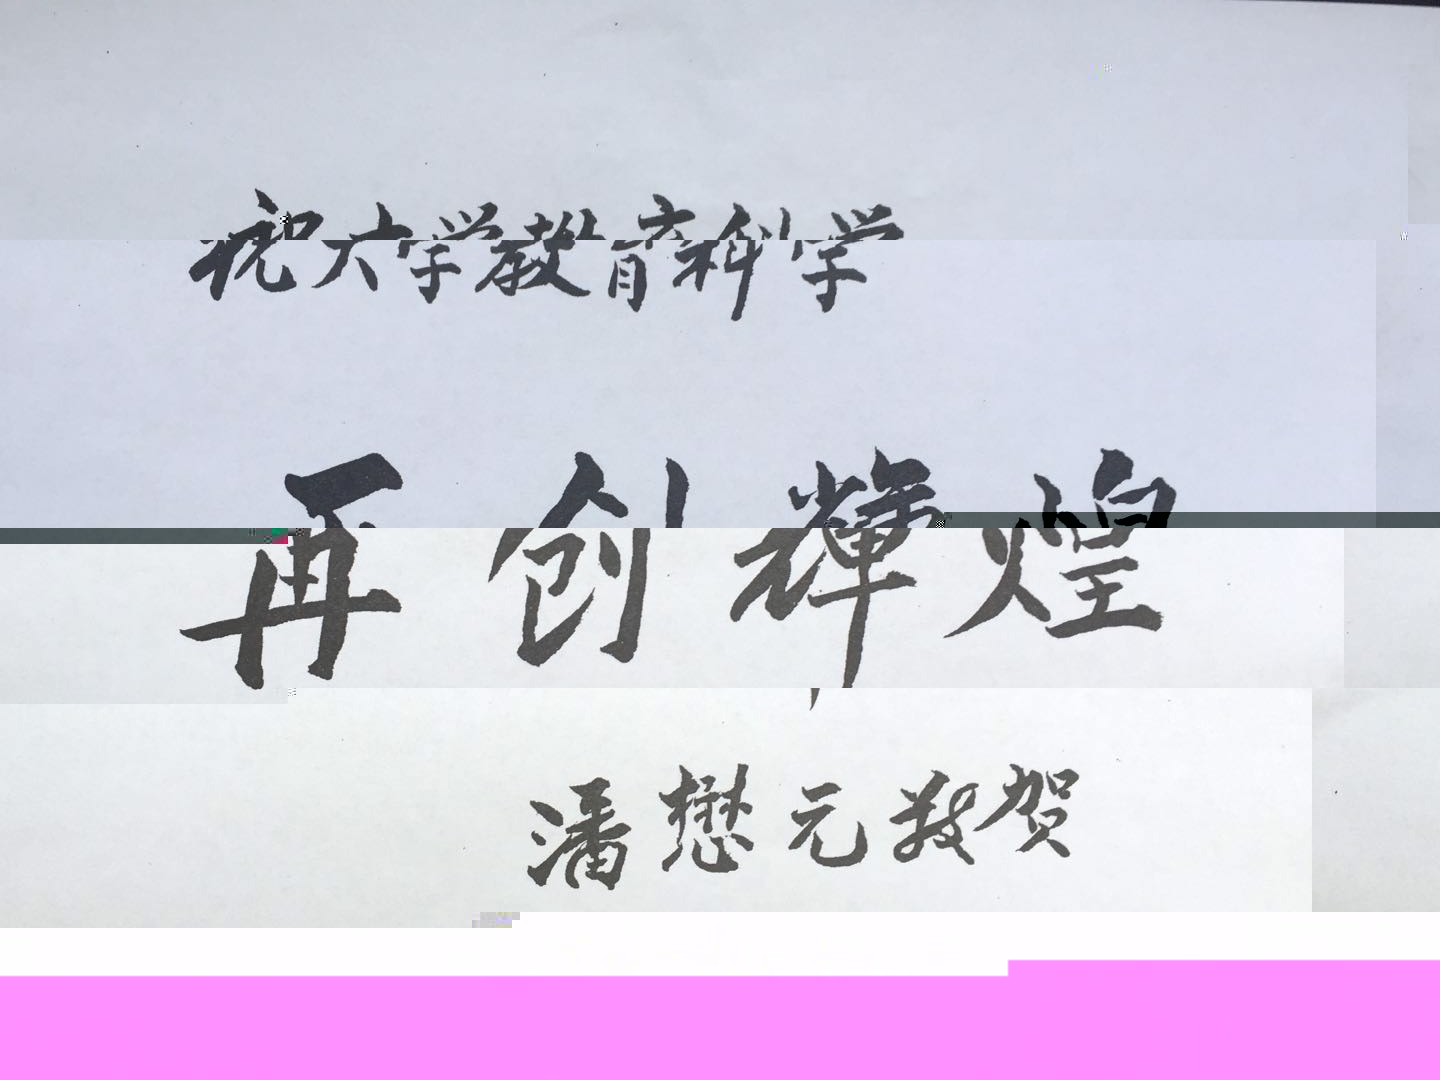 祝大学教育科学
再创輝煌
潘懋元敬贺